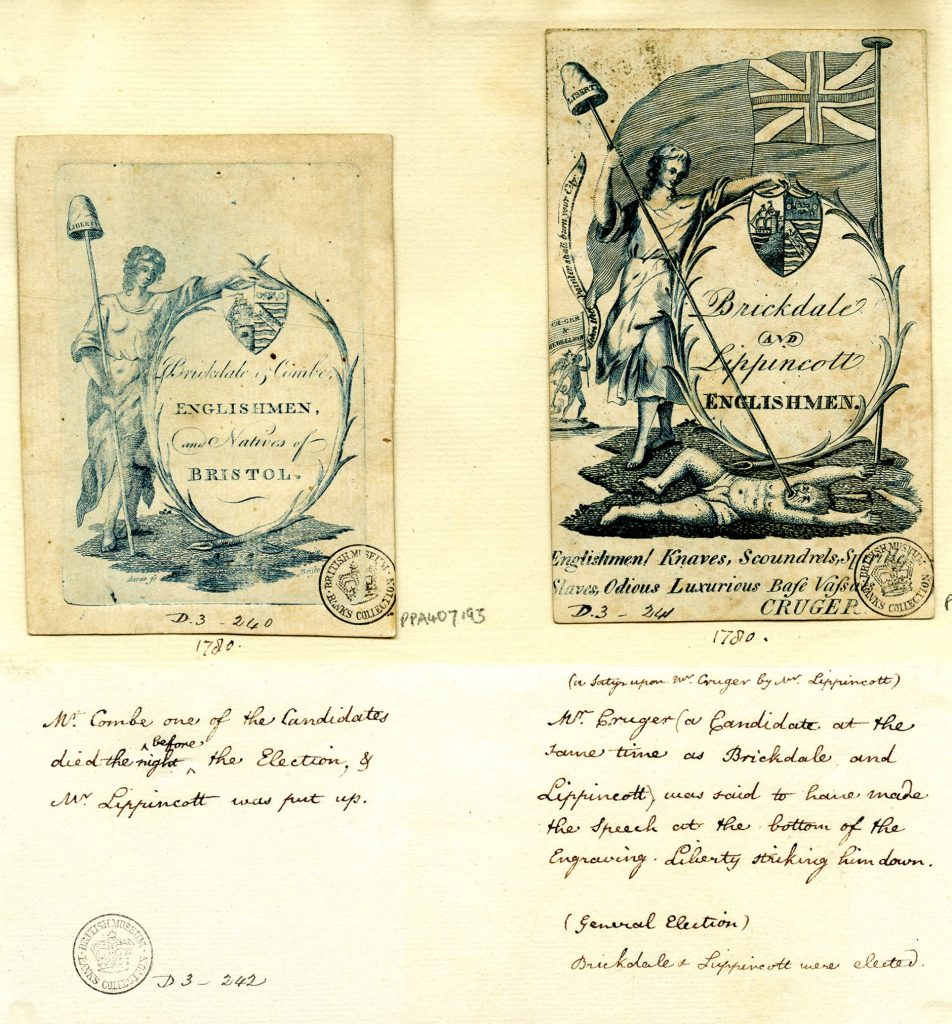 LIBERTY
Brickdale & Combe,
ENGLISHMEN,
and Natives of
BRISTOL.
BRITISH MUSEUM
BANKS COLLECTION
D.3 - 240
PPA407193
1780.
LIBERTY
Yankee shall burn your City
CRUGER
&
REBELLION
Brickdale
AND
Lippincott
ENGLISHMEN.
Englishmen! Knaves, Scoundrels,
Slaves, Odious Luxurious Base Vassa
CRUGER
BRITISH MUSEUM
BANKS COLLECTION
D.3 - 241
P
1780.
Mr. Combe one of the Candidates
died the night before the Election, &
Mr. Lippincott was put up.
BRITISH MUSEUM
BANKS COLLECTION
D 3 - 242
(a Satyr upon Mr. Cruger by Mr. Lippincott)
Mr. Cruger (a Candidate at the
same time as Brickdale and
Lippincott) was said to have made
the Speech at the bottom of the
Engraving. Liberty striking him down.
(General Election)
Brickdale & Lippincott were elected.